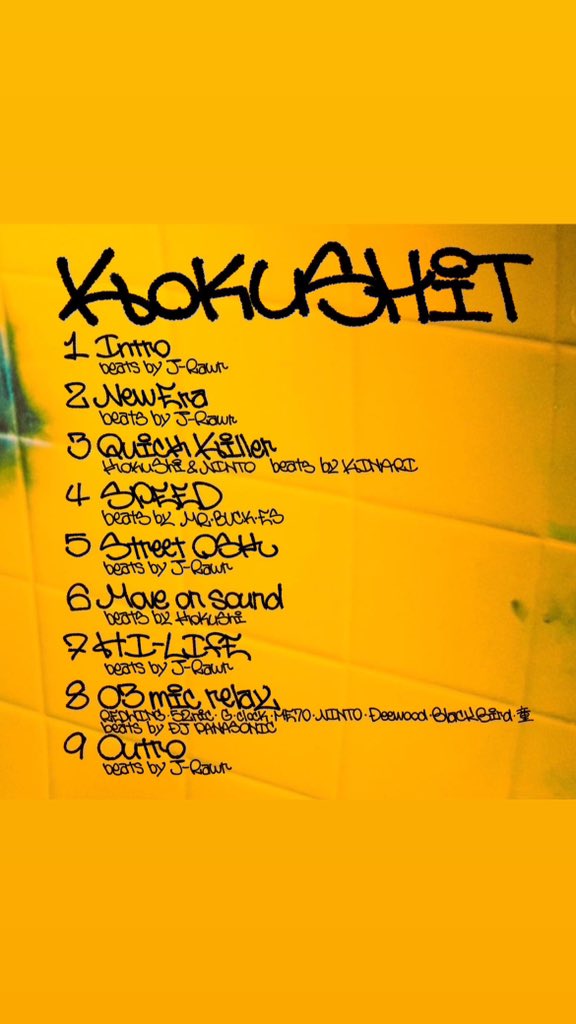 HOKUSHIT
1 Intro
beats by J-Rawr
2 New Era
beats by J-Rawr
3 Quick Killer
HOKUSHI & NINTO beats by KINARI
4 SPEED
beats by MR.BUCK.ES
5 Street OSK
beats by J-Rawr
6 Move on sound
beats by Hokushi
7 HI-LIFE
beats by J-Rawr
8 03 mic relay
REDWING・52nic・G.clock・ME70・NINTO・Deewood・BlackBird・童
beats by DJ PANASONIC
9 Outro
beats by J-Rawr